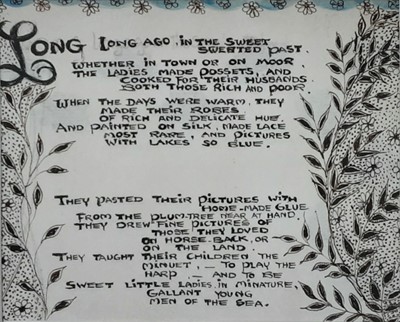 LONG LONG AGO, IN THE SWEET
SWEETED PAST.
WHETHER IN TOWN OR ON MOOR
THE LADIES MADE POSSETS, AND
COOKED FOR THEIR HUSBANDS
BOTH THOSE RICH AND POOR
WHEN THE DAYS WERE WARM, THEY
MADE THEIR ROBES
OF RICH AND DELICATE HUE.
AND PAINTED ON SILK, MADE LACE
MOST RARE, AND PICTURES
WITH LAKES SO BLUE.
THEY PASTED THEIR PICTURES WITH
HOME-MADE GLUE
FROM THE PLUM-TREE NEAR AT HAND.
THEY DREW FINE PICTURES OF
THOSE THEY LOVED
ON HORSE-BACK, OR
ON THE LAND.
THEY TAUGHT THEIR CHILDREN THE
MINUET, — TO PLAY THE
HARP, — AND TO BE
SWEET LITTLE LADIES, IN MINATURE,
GALLANT YOUNG
MEN OF THE SEA.